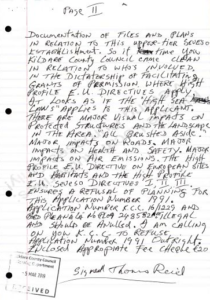 Page II
Documentation of files and plans
in relation to this upper-tier Seveso
Establishment. So it time you
Kildare County Council came clean
in relation to who's involved
in the Dictatorship of Facilitating
Grants of Permission where High
Profile E.U. Directives apply.
It looks as if the High
Laws Applies to this Applicant.
There are major visual impacts on
Protected Structures and the landscape
in the area, all Seveso
Major impacts on roads. Major
impacts on Health and Safety. Major
impacts on Air Emissions. The High
Profile E.U. Directive on European sites
and Habitats and the High Profile
E.U. Seveso Directives I, II, III
ensures a refusal of planning for
this Application Number 1991.
Application Number K.C.C. 16/1229 and
Bord Pleanala
Illegal
and should be Annulled. I am calling
on now K.C.C. to refuse
Application Number 1991 outright.
Enclosed Appropriate Fee Cheque €20
Signed Thomas Reid
Kildare County Council
RECEIVED